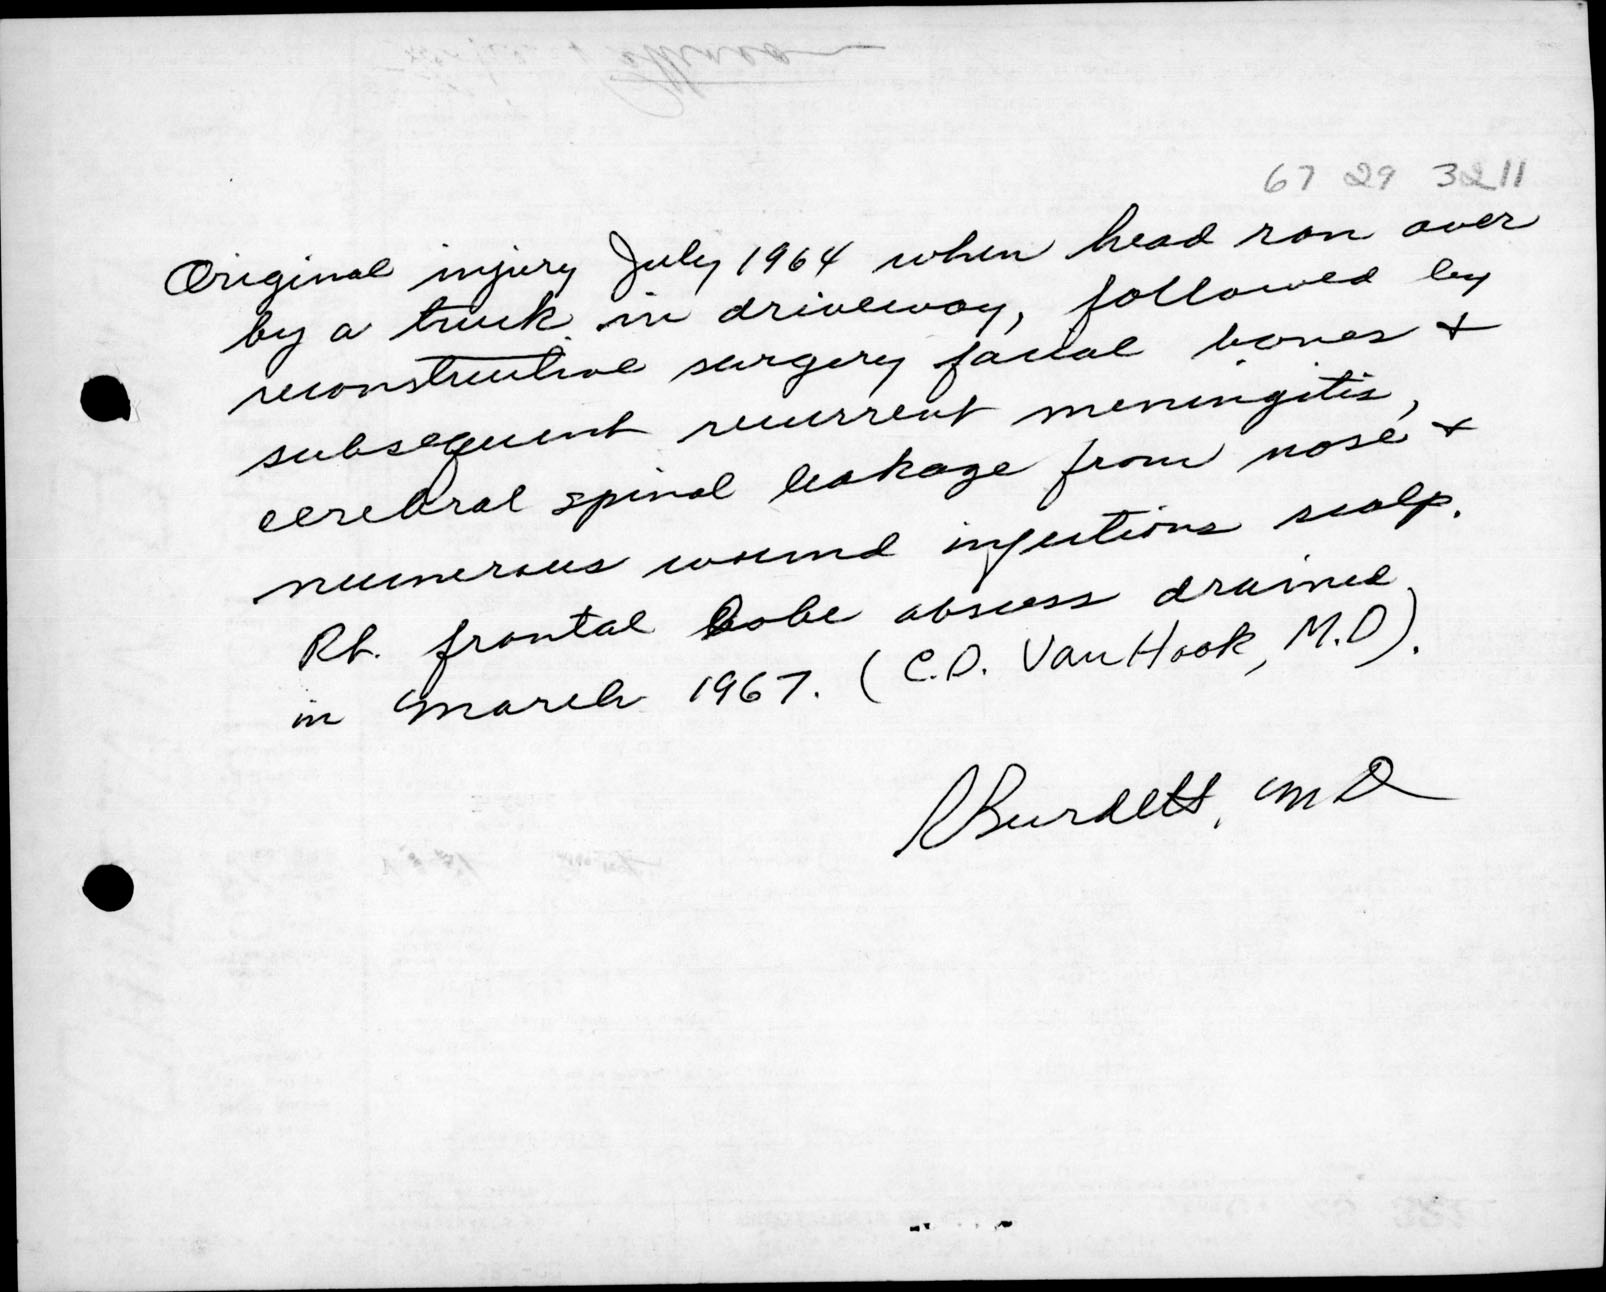 67 29 3211
Original injury July 1964 when head ran over
by a truck in driveway, followed by
reconstructive surgery facial bones +
subsequent recurrent meningitis,
cerebral spinal leakage from nose +
numerous wound infections scalp.
Rt. frontal lobe abscess drained
in March 1967. (C.D. Van Hook, M.D).
R Burdett, MD